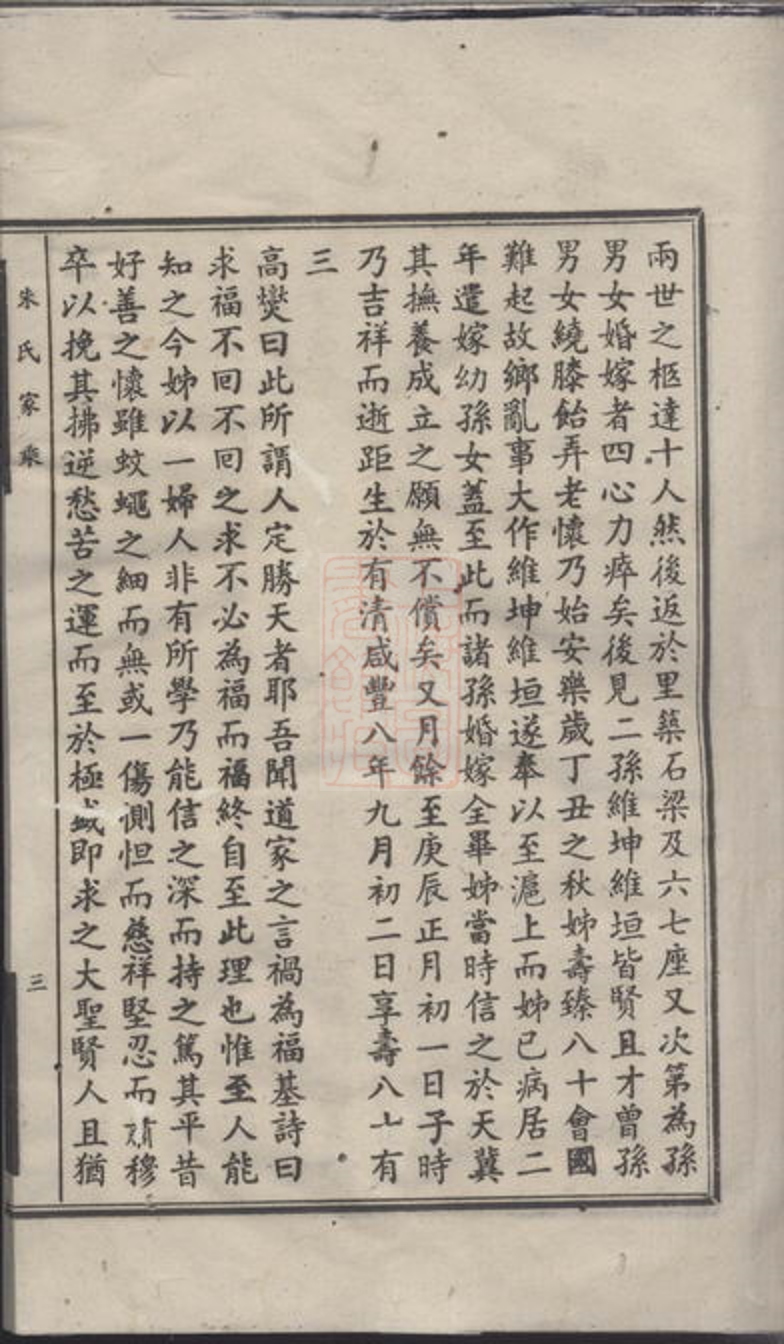 兩世之柩達十人然後返於里築石梁及六七座又次第為孫
男女婚嫁者四心力瘁矣後見二孫維坤維垣皆賢且才曾孫
男女繞膝飴弄老懷乃始安樂歲丁丑之秋姊壽臻八十會國
難起故鄉亂事大作維坤維垣遂奉以至滬上而姊已病居二
年遣嫁幼孫女蓋至此而諸孫婚嫁全畢姊當時信之於天冀
其撫養成立之願無不償矣又月餘至庚辰正月初一日子時
乃吉祥而逝距生於有清咸豐八年九月初二日享壽八十有
三
高爕曰此所謂人定勝天者耶吾聞道家之言禍為福基詩曰
求福不回不回之求不必為福而福終自至此理也惟至人能
知之今姊以一婦人非有所學乃能信之深而持之篤其平昔
好善之懷雖蚊蠅之細而無或一傷惻怛而慈祥堅忍而穆
卒以挽其拂逆愁苦之運而至於極盛即求之大聖賢人且猶
朱氏家乘
三